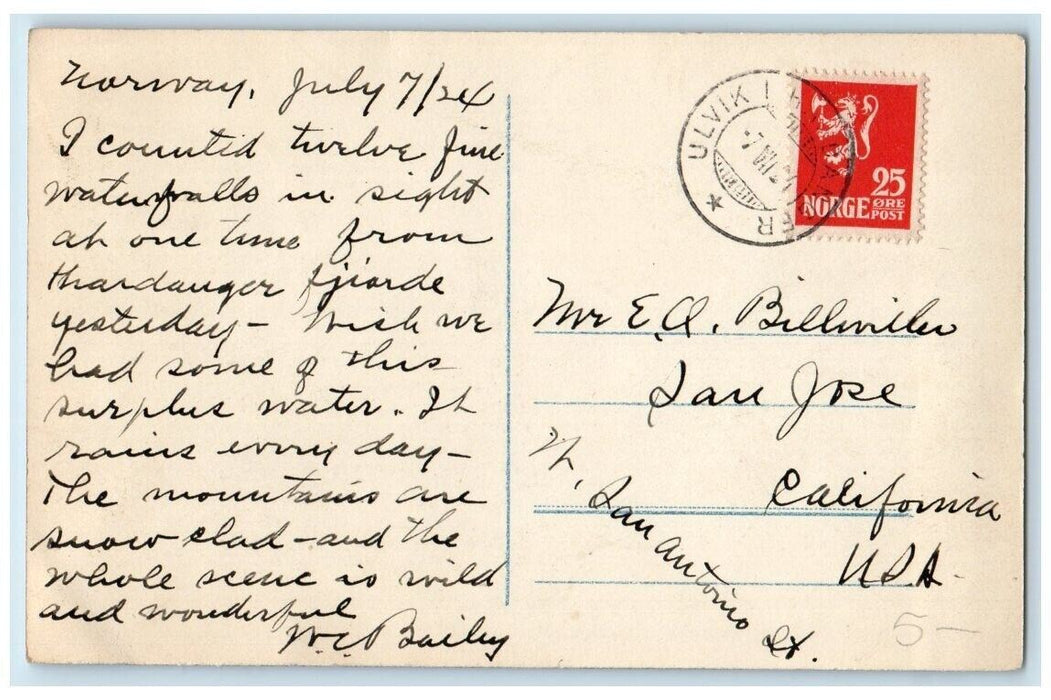 Norway, July 7/24
I counted twelve fine
waterfalls in sight
at one time from
Hardanger fjiorde
yesterday - Wish we
had some of this
surplus water. It
rains every day -
The mountains are
snow clad - and the
whole scene is wild
and wonderful
W.C. Bailey
ULVIK I HARDANGER
25
NORGE ØRE
POST
Mr E.A. Billwiller
San Jose
California
San Antonio St.
USA
5-